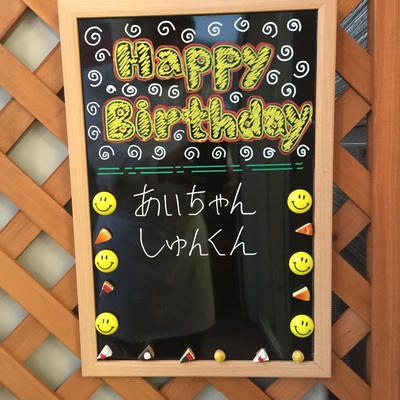 Happy
Birthday
あいちゃん
しゅんくん